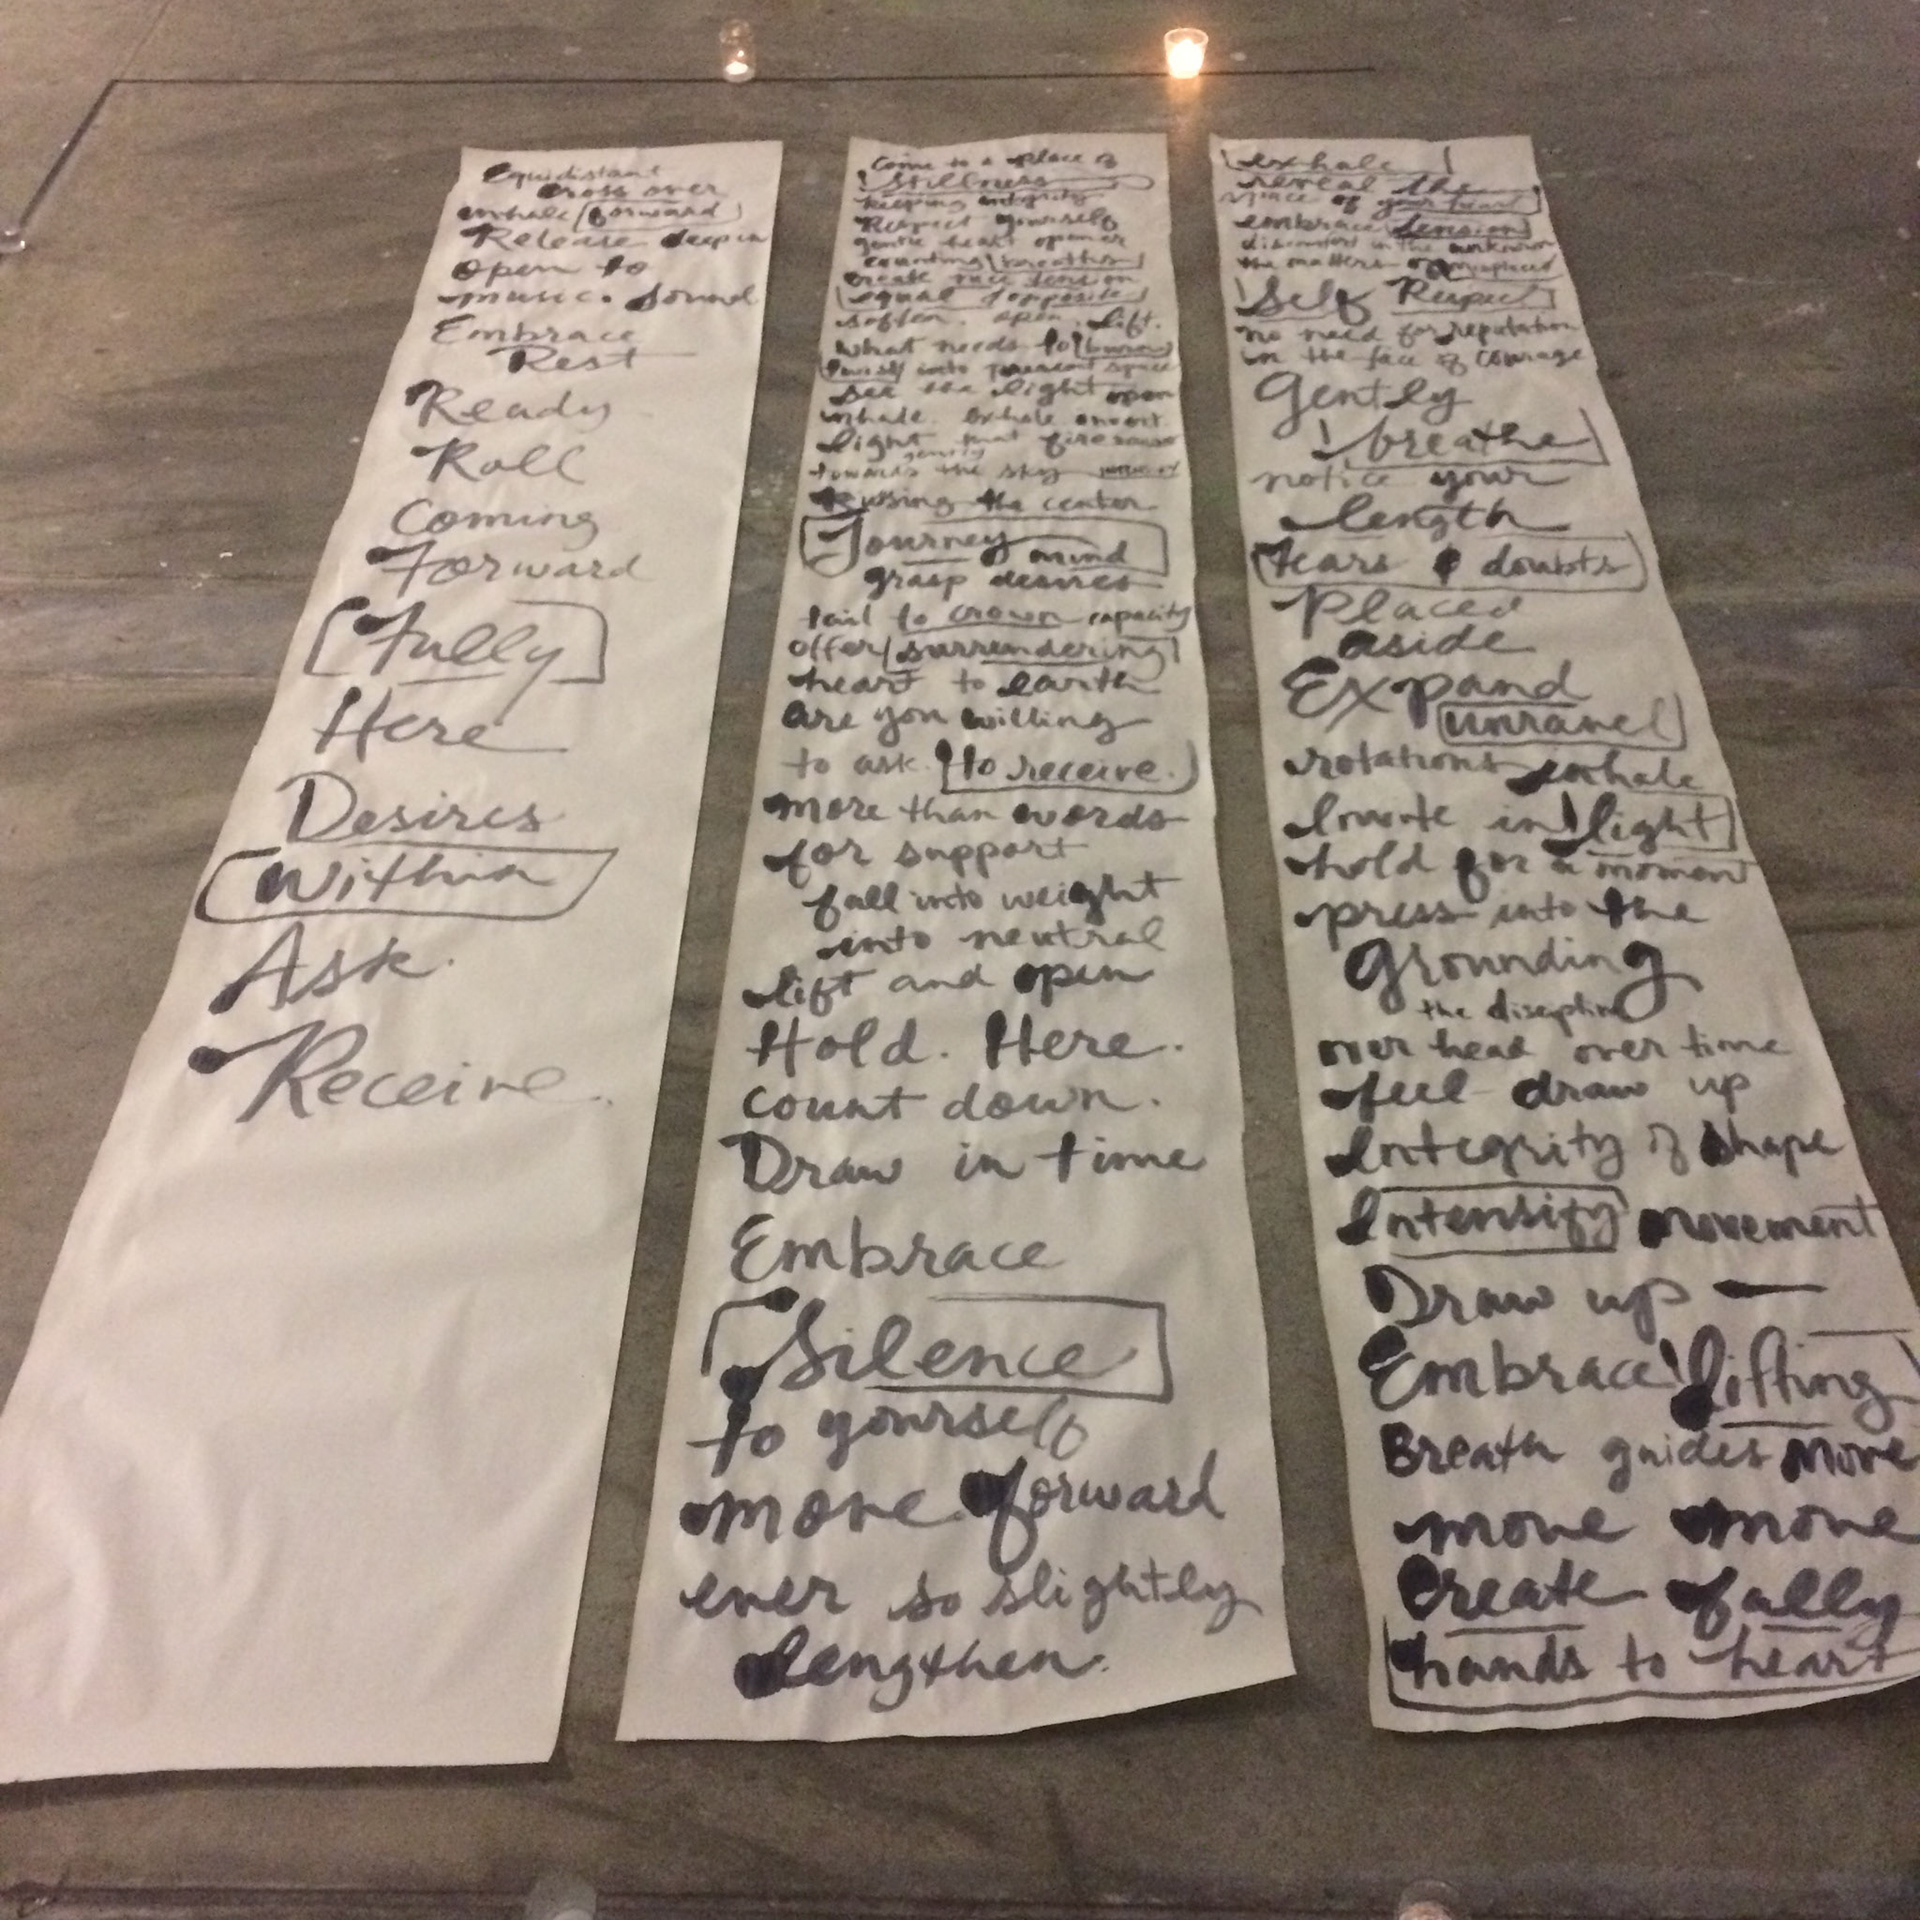 Equidistant
cross over
inhale forward
Release deep in
open to
music. sound
Embrace
Rest
Ready
Roll
Coming
Forward
Fully
Here
Desires
Within
Ask.
Receive.
Come to a place of
stillness
keeping integrity
Respect yourself
gentle heart opener
counting breaths
create
equal opposite
soften. open. lift.
what needs to
into space
see the light upon
inhale. exhale
light that
gently
towards the sky
the center
Journey mind
grasp desires
tail to crown capacity
offer surrendering
heart to earth
are you willing
to ask. to receive.
more than words
for support
fall into weight
into neutral
lift and open
Hold. Here.
count down.
Draw in time
Embrace
Silence
to yourself
move forward
ever so slightly
lengthen.
exhale
reveal the
space of your heart
embrace tension
discomfort in the unknown
the matters of
Self Respect
no need for reputation
in the face of courage
Gently
breathe
notice your
length
fears & doubts
Placed
aside
Expand
unravel
rotations inhale
Invite in light
hold for a moment
press into the
Grounding
the discipline
over head over time
feel draw up
Integrity of shape
Intensify movement
Draw up —
Embrace lifting
Breath guides move
move move
Create fully
hands to heart